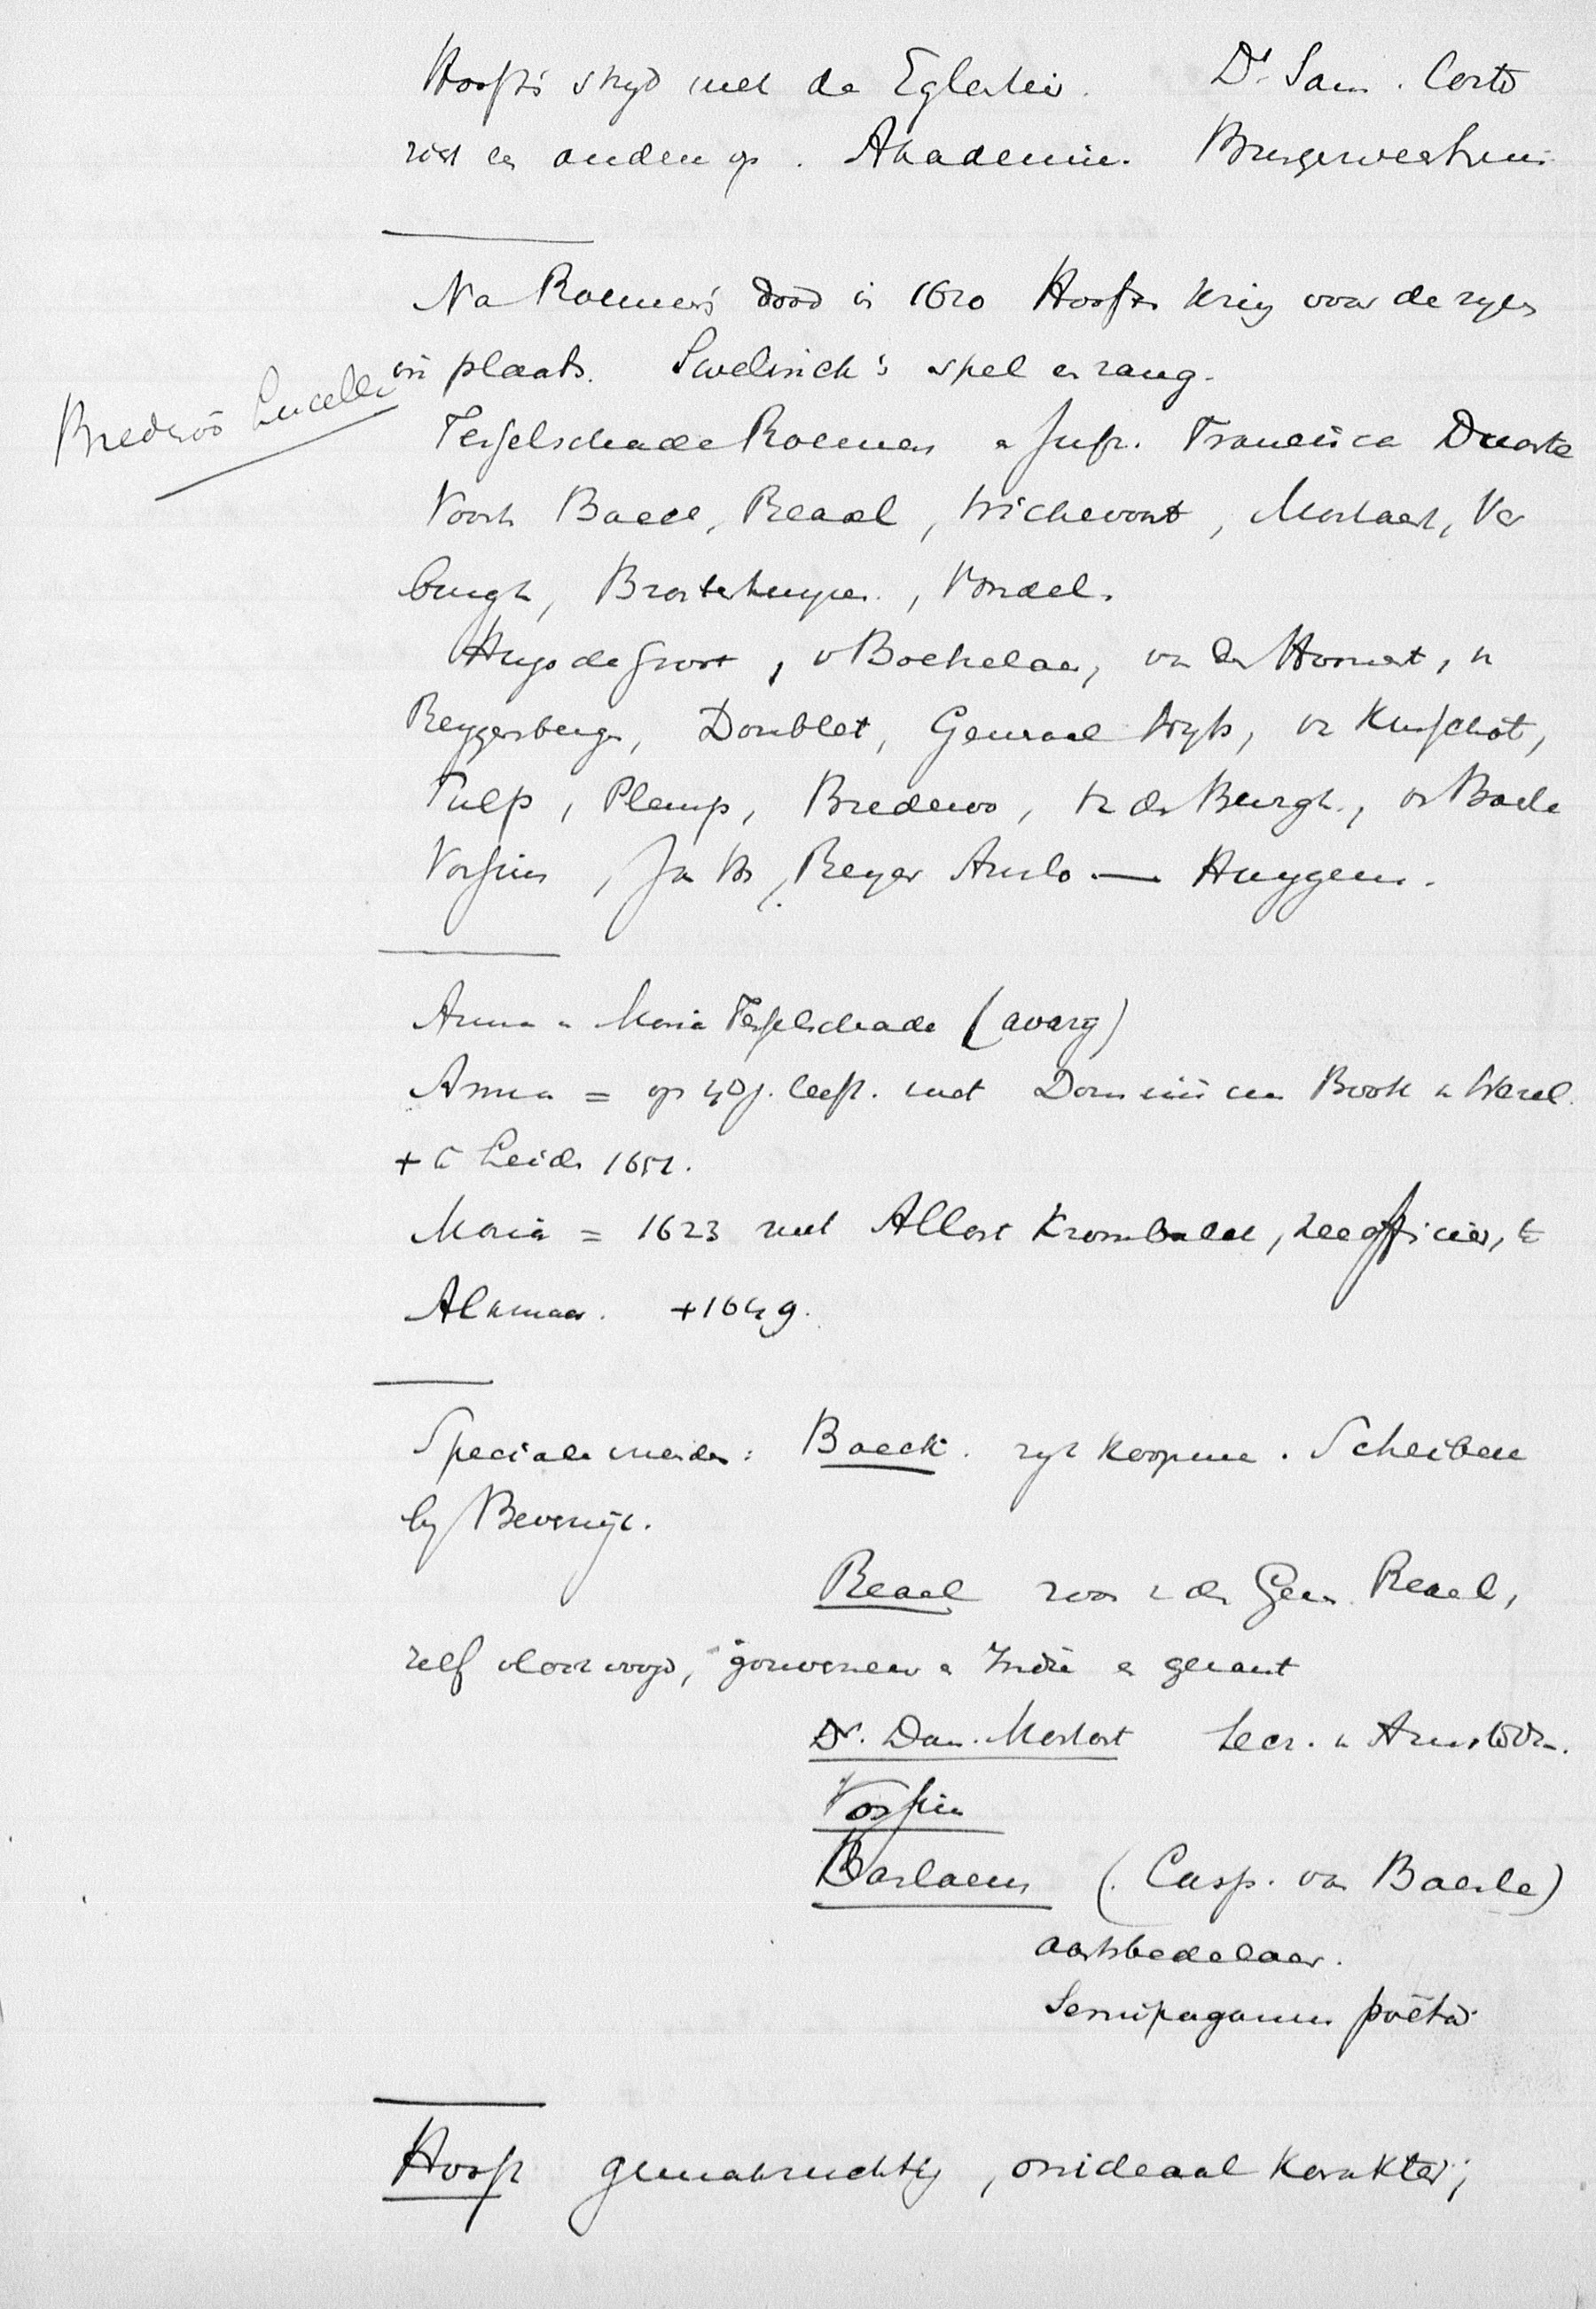 Hooft's stryd met de Eglentier. Dr. Sam. Coster
rigt er anden op. Akademie. Burgerweeshuis
Na Roemer's dood in 1620 Hoofts kring voor de zyn
in plaats. Swelinck's spel en zang.
Bredero's Lucelle
Tesselschade Roemers en Jufr. Francisca Duarte
Voorts Baeck, Reael, Wickevoort, Mostaert, Ver
burgh, Brosterhuyzen, Vondel.
Hugo de Groot, v Bockelaar, van der Honert, v
Reygersberg, Doublet, Generaal Wyts, vn Kinschot,
Tulp, Plemp, Bredero, vn der Burgh, vn Baerle
Vossius, Jan Vos, Reyer Anslo — Huygens.
Anna en Maria Tesselschade (averg)
Anna = op 40 j. leeft. met Dominicus Booth v Wesel.
+ te Leiden 1651.
Maria = 1623 met Allart Krombalck, zeeofficier, te
Alkmaar. +1649.
Speciale vrienden: Baeck. ryk koopman. Scheibeek
by Beverwijk.
Reael zoon v den Gen. Reael,
zelf vlootvoogd, gouverneur v Indië en gezant
Dr. Dan. Mostert Secr. v Amsterdm.
Vossius
Barlaeus (Casp. van Baerle)
aartsbedelaar.
Semipaganus poëta
Hooft gemakzuchtig, onideaal karakter;